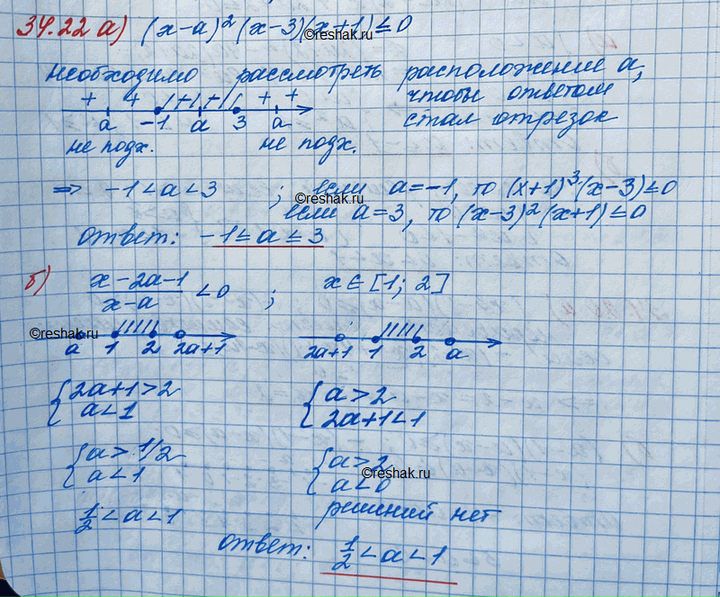 34.22 а) (x-a)²(x-3)(x+1)≤0
©reshak.ru
необходимо рассмотреть расположение а,
чтобы ответом
стал отрезок
+ + + + + +
a -1 a 3 a
не подх. не подх.
⇒ -1<a<3 ; если a=-1, то (x+1)³(x-3)≤0
©reshak.ru
если a=3, то (x-3)²(x+1)≤0
ответ: -1≤a≤3
б) (x-2a-1)/(x-a) <0 ; x∈[1; 2]
©reshak.ru
a 1 2 2a+1 2a+1 1 2 a
{2a+1>2 {a>2
a<1 2a+1<1
{a>1/2 {a>2
©reshak.ru
a<1 a<0
1/2<a<1 решений нет
ответ: 1/2<a<1